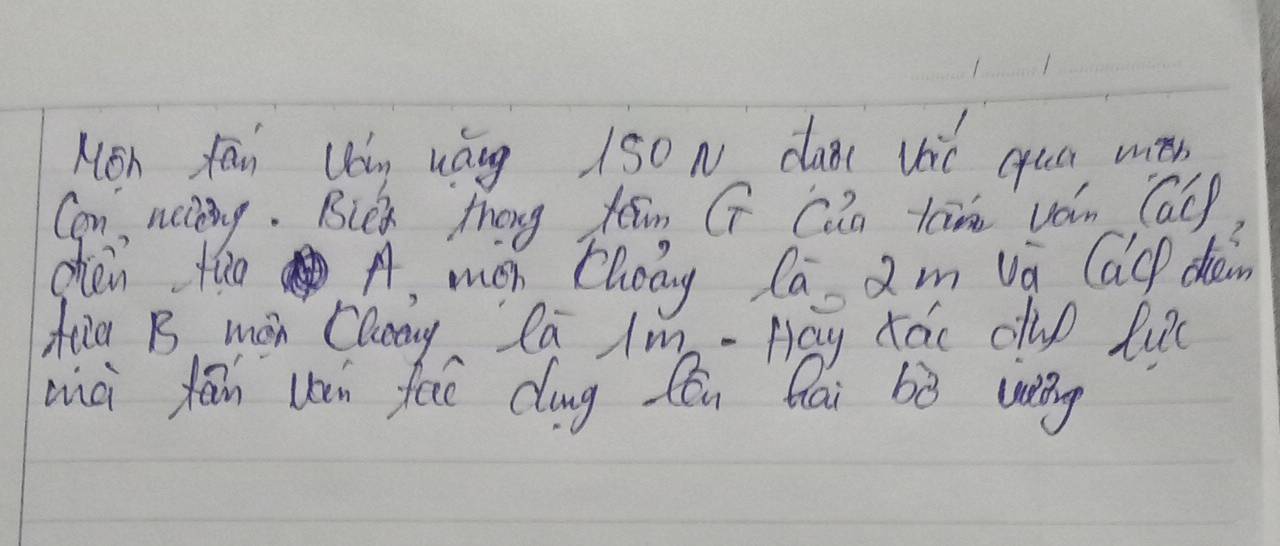 Một tấm ván nặng 150 N được bắc qua một
con mương. Biết trọng tâm G của tấm ván cách
điểm tựa A, một khoảng là 2 m và cách điểm
tựa B một khoảng là 1m. Hãy xác định lực
mà tấm ván tác dụng lên hai bờ mương